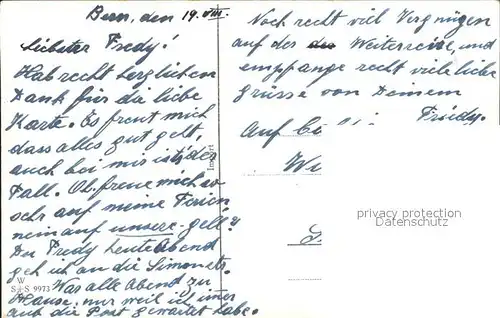 Bern, den 19. VIII.
Liebster Fredy!
Hab recht herzlichen
Dank für die liebe
Karte. Es freut mich
dass alles gut geht,
auch bei mir ist's der
Fall. Oh, freue mich so
sehr auf meine Ferien
nein auf unsere gell?
Du Fredy heute Abend
geh ich an die Simonstr.
Was alle Abend zu
Hause, nur weil ich immer
auf die Post gewartet habe.
W
S+S 9973
Import
Noch recht viel Vergnügen
auf der Weiterreise, und
empfange recht viele liebe
Grüsse von Deinem
Friedy.
Auf
Wi
privacy protection
DARMSVEN.DE